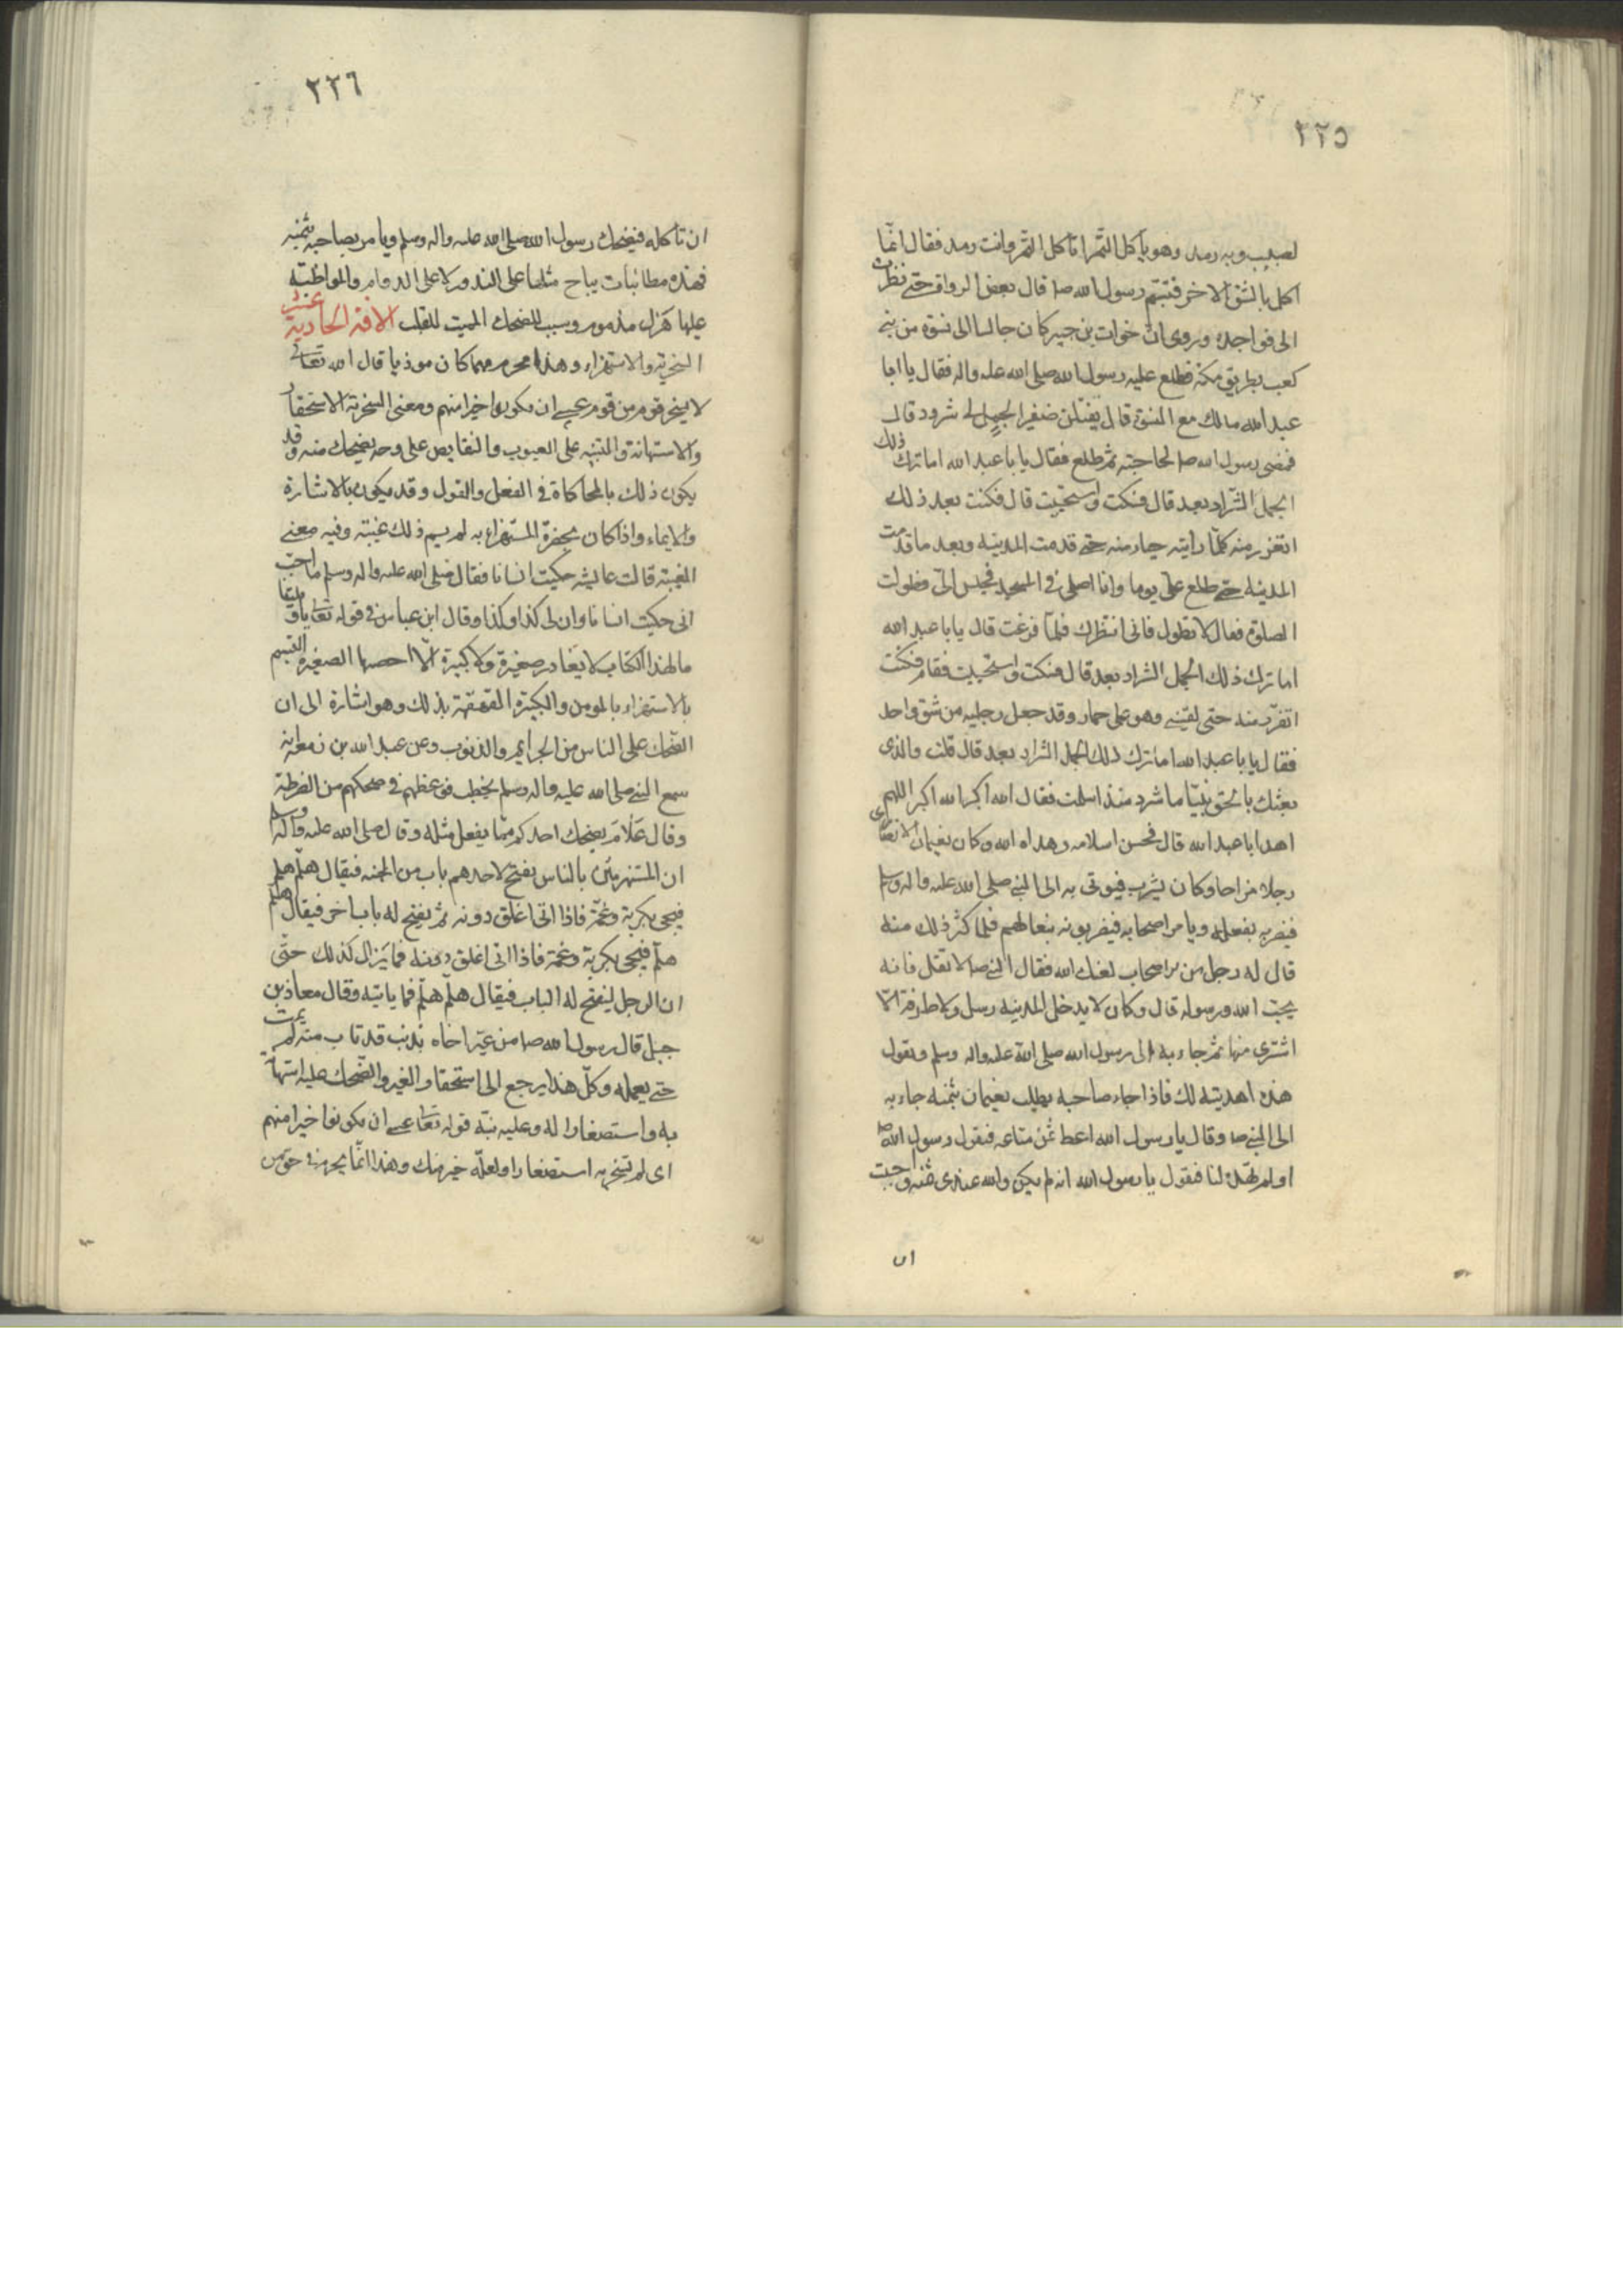 ٢٢٥
لصهيب وبه رمد وهو يأكل التمر اتأكل التمر وانت رمد فقال انما
اكل بالشق الاخر فتبسم رسول الله صلم قال بعض الرواة حتى نظرت
الى نواجده وروى ان خوات بن جبير كان جالسا الى نسوة من بنى
كعب بطريق مكة فطلع عليه رسول الله صلى الله عليه واله فقال يا ابا
عبد الله مالك مع النسوة قال يفتلن ضفيرا لجمل لى شرود قال
فمضى رسول الله صلم لحاجته ثم طلع فقال يا با عبد الله اما ترك ذلك
الجمل الشراد بعد قال فسكت واستحييت قال فكنت بعد ذلك
اتفرر منه كلما رايته حياء منه حتى قدمت المدينة وبعد ما قدمت
المدينة حتى طلع على يوما وانا اصلى فى المسجد فجلس الىّ فطولت
الصلوة فقال لا تطول فانى انتظرك فلما فرغت قال يا با عبد الله
اما ترك ذلك الجمل الشراد بعد قال فسكت واستحييت فقام فكنت
اتفرر منه حتى لقينى وهو على حمار وقد جعل رجليه من شق واحد
فقال يا با عبد الله اما ترك ذلك الجمل الشراد بعد قال قلت والذى
بعثك بالحق نبيا ما شرد منذ اسلمت فقال الله اكبر الله اكبر اللهم
اهد ابا عبد الله قال فحسن اسلامه وهداه الله وكان نعيمان الانصارى
رجلا مزاحا وكان يشرب فيوتى به الى النبى صلى الله عليه واله وسلم
فيضربه بفعله ويامر اصحابه فيضربونه بنعالهم فلما كثر ذلك منه
قال له رجل من اصحاب لعنك الله فقال النبى صلم لا تفعل فانه
يحب الله ورسوله قال وكان لا يدخل المدينة رسل ولا طرفة الا
اشترى منها ثم جاء به الى رسول الله صلى الله عليه واله وسلم ويقول
هذه اهديته لك فاذا جاء صاحبه يطلب نعيمان بثمنه جاء به
الى النبى صلم وقال يا رسول الله اعط ثمن متاعه فيقول رسول الله صلم
اولم تهده لنا فيقول يا رسول الله انه لم يكن والله عندى ثمنه واحببت
ان
٢٢٦
ان تاكله فيضحك رسول الله صلى الله عليه واله وسلم ويامر بصاحبه بثمنه
فهذه مطائبات يباح مثلها على الندور لا على الدوام والمواظبة
عليها هزل مذموم وسبب للضحك المميت للقلب الافة الحادية عشر
السخرية والاستهزاء وهذا محرم مهما كان موذيا قال الله تعالى
لا يسخر قوم من قوم عسى ان يكونوا خيرا منهم ومعنى السخرية الاستحقار
والاستهانة والتنبيه على العيوب والنقايص على وجه يضحك منه وقد
يكون ذلك بالمحاكاة فى الفعل والقول وقد يكون بالاشارة
والايماء واذا كان بحضرة المستهزاء به لم يسم ذلك غيبة وفيه معنى
الغيبة قالت عايشه حكيت انسانا فقال صلى الله عليه واله وسلم ما احب
انى حكيت انسانا وان لى كذا وكذا وقال ابن عباس فى قوله تعالى يا ويلتنا
ما لهذا الكتاب لا يغادر صغيرة ولا كبيرة الا احصها الصغيرة التبسم
بالاستهزاء بالمومن والكبيرة القهقهة بذلك وهو اشارة الى ان
الضحك على الناس من الجرايم والذنوب وعن عبد الله بن زمعه انه
سمع النبى صلى الله عليه واله وسلم يخطب فوعظهم فى ضحكهم من الضرطة
وقال علام يضحك احدكم مما يفعل مثله وقال صلى الله عليه واله وسلم
ان المستهزئين بالناس يفتح لاحدهم باب من الجنه فيقال هلم هلم
فيجى بكربه وغمه فاذا اتى اغلق دونه ثم يفتح له باب اخر فيقال هلم
هلم فيجى بكربه وغمه فاذا اتى اغلق دونه فما يزال كذلك حتى
ان الرجل ليفتح له الباب فيقال هلم هلم فما ياتيه وقال معاذ بن
جبل قال رسول الله صلم من عير اخاه بذنب قد تاب منه لم يمت
حتى يعمله وكل هذا يرجع الى استحقار الغير والضحك عليه استهانة
به واستصغارا له وعليه نبه قوله تعالى عسى ان يكونوا خيرا منهم
اى لم تسخر به استصغارا ولعله خير منك وهذا انما يحرم فى حق من